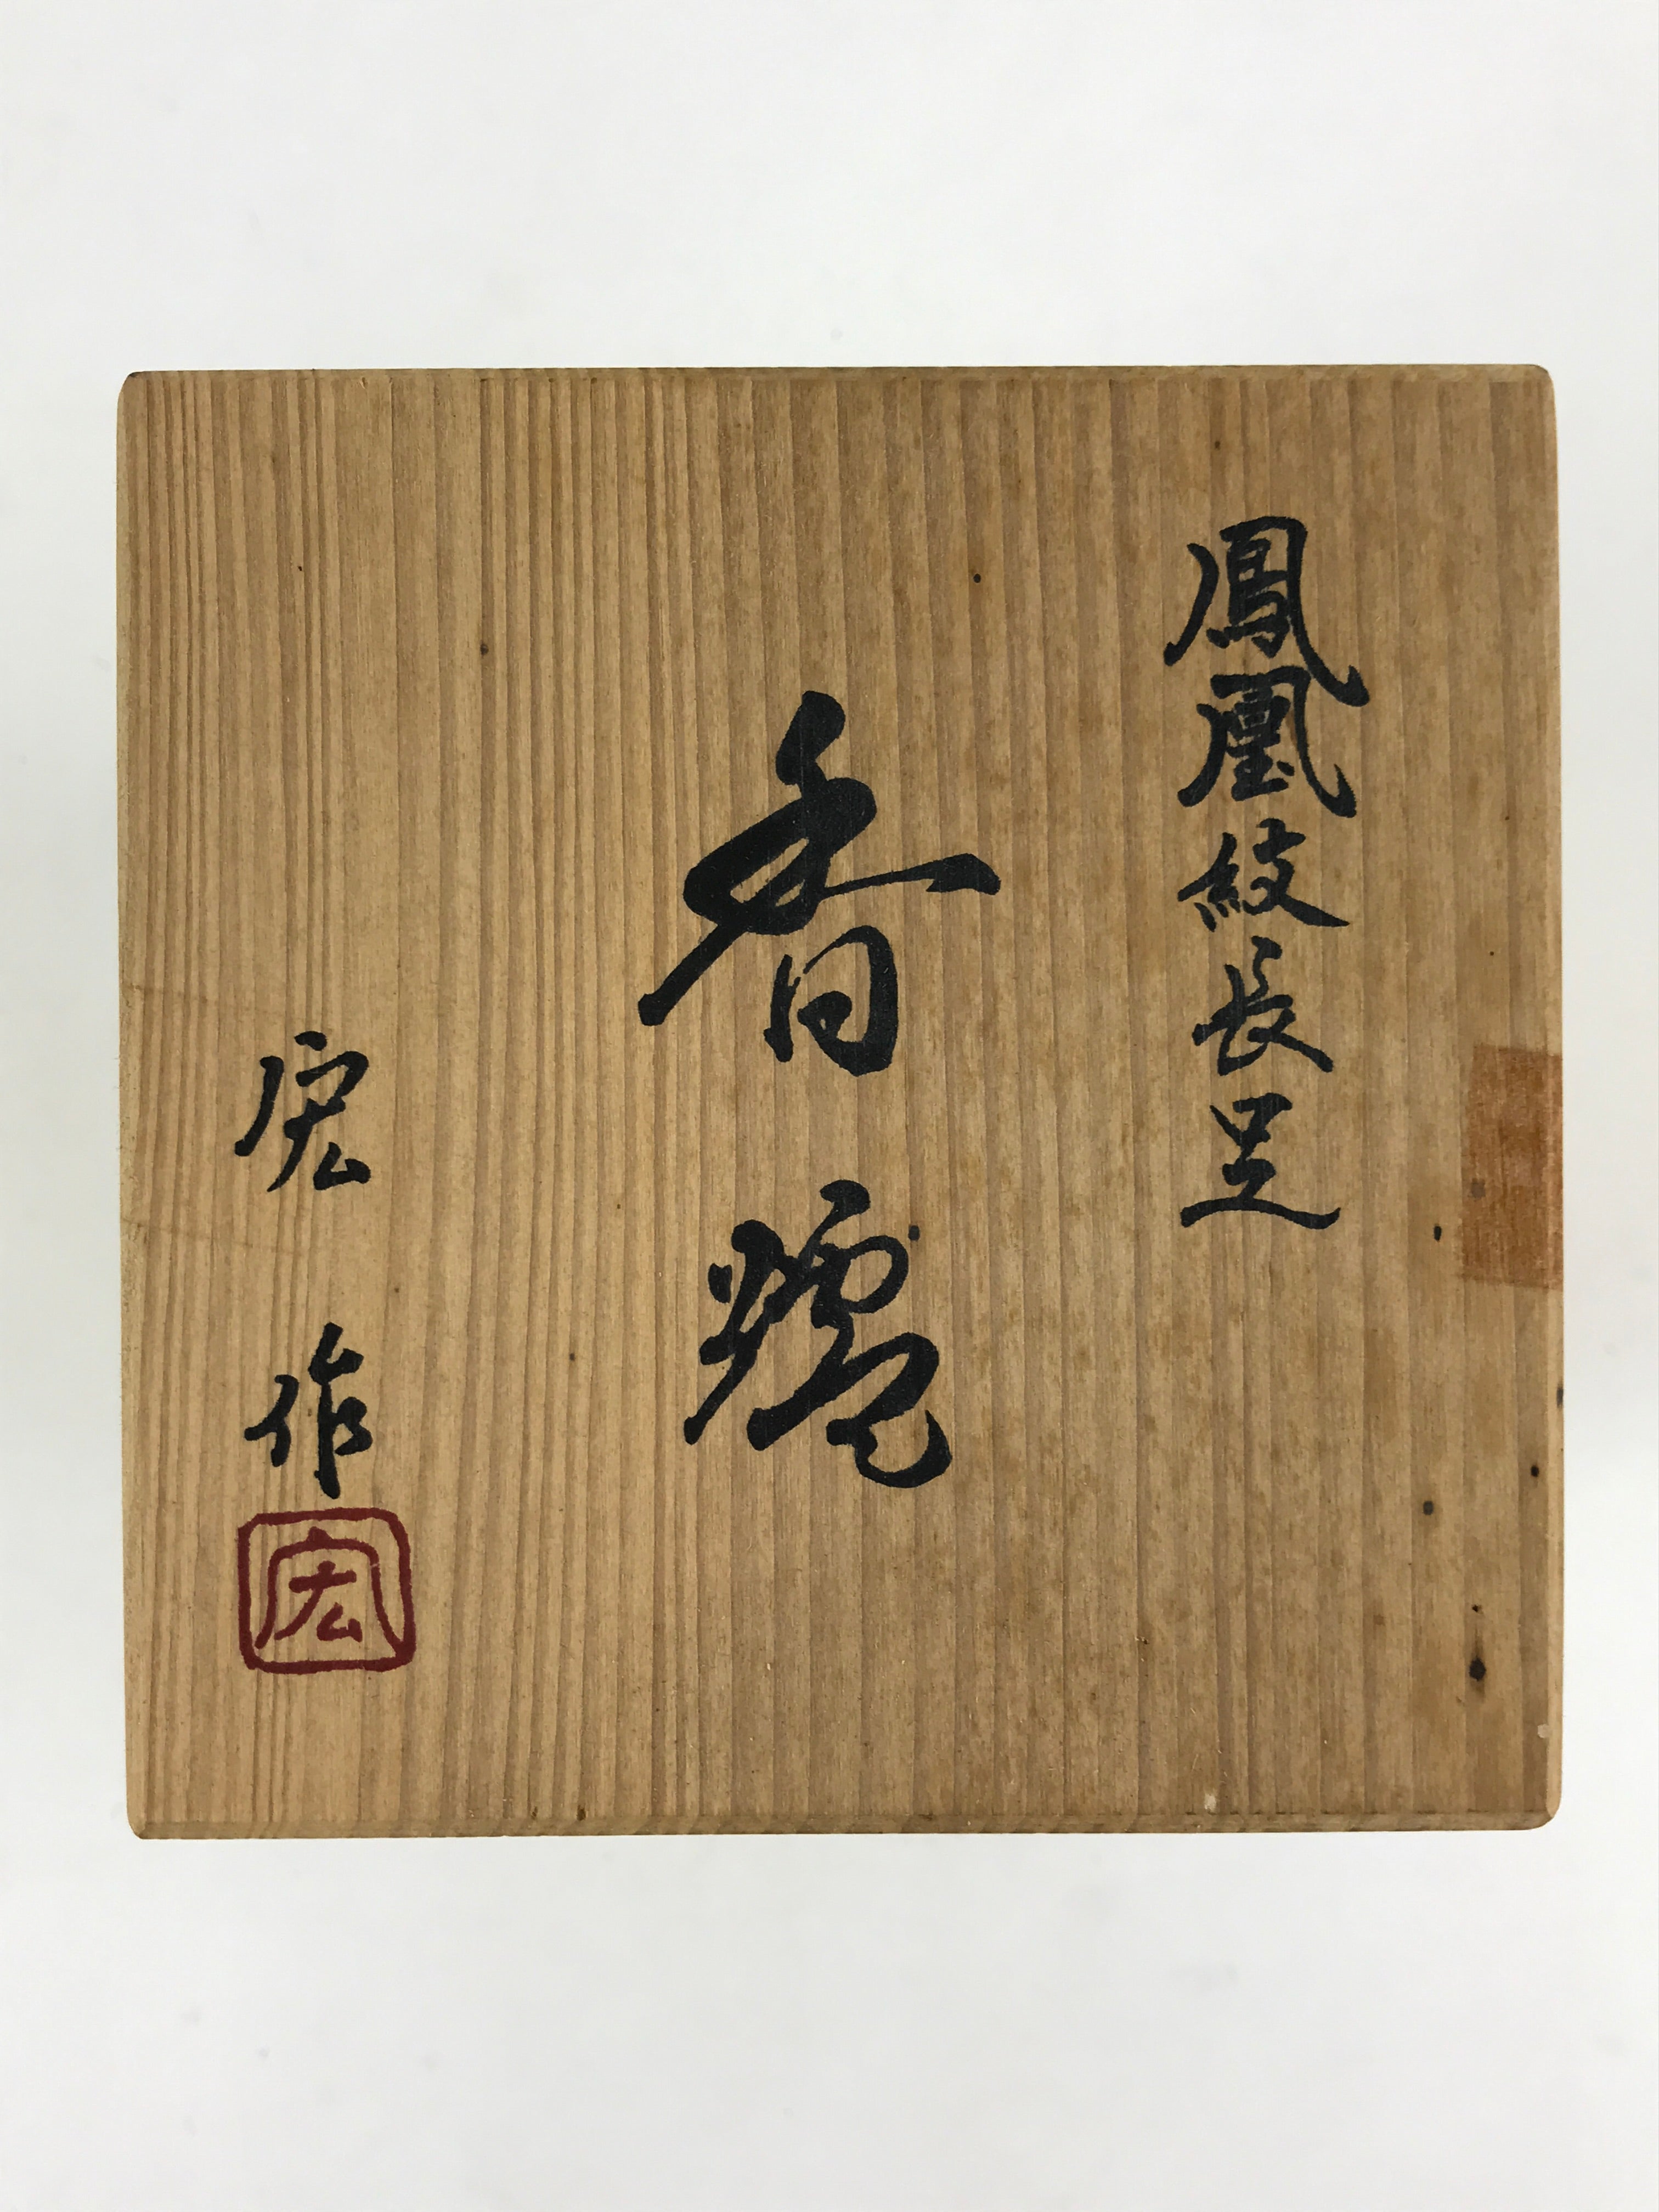 鳳凰紋長足
香爐
宏作
宏